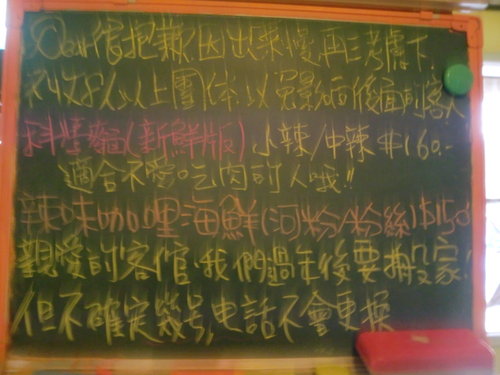 很抱歉因出來慢再三考慮下
不收8人以上團体以免影响後面的客人
料醬麵(新鮮版) 小辣/中辣 $160.-
適合不愛吃肉的人哦!!
辣味咖哩海鮮(河粉/粉絲)$150
親愛的客倌,我們過年後要搬家!
但不確定幾号,电話不會更換